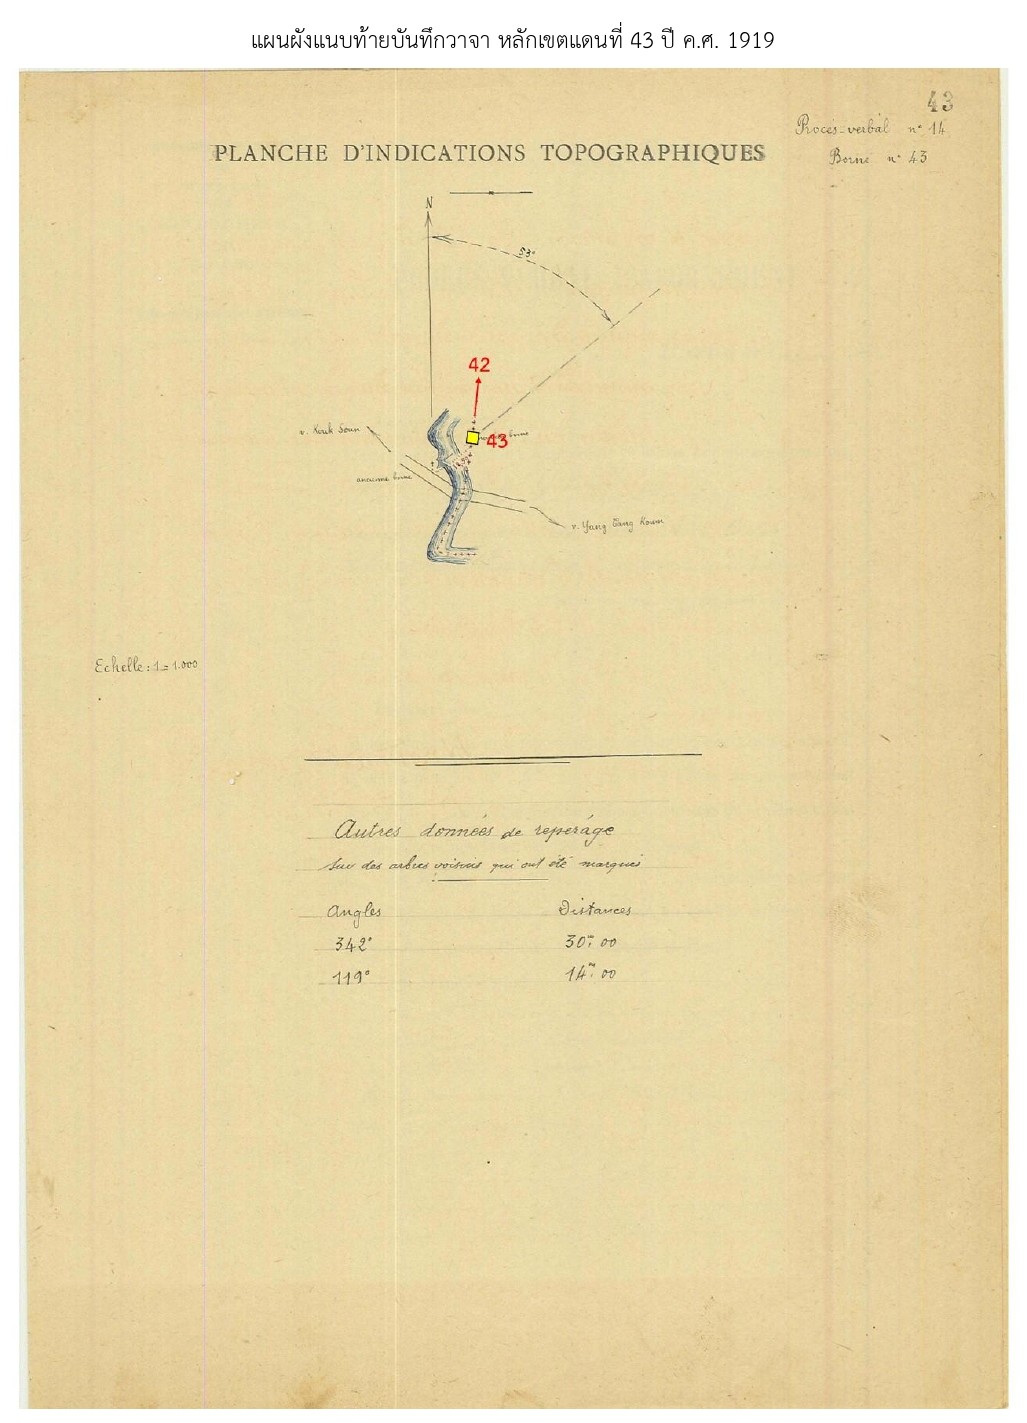 แผนผังแนบท้ายบันทึกวาจา หลักเขตแดนที่ 43 ปี ค.ศ. 1919
43
Procès-verbal n° 14
Borne n° 43
PLANCHE D'INDICATIONS TOPOGRAPHIQUES
N
53°
42
v. Kouk Soun
borne
43
ancienne borne
v. Yang Eang Koum
Echelle: 1 = 1.000
Autres données de reperáge
sur des arbres voisins qui ont été marqués
Angles Distances
342° 30m,00
119° 14m,00